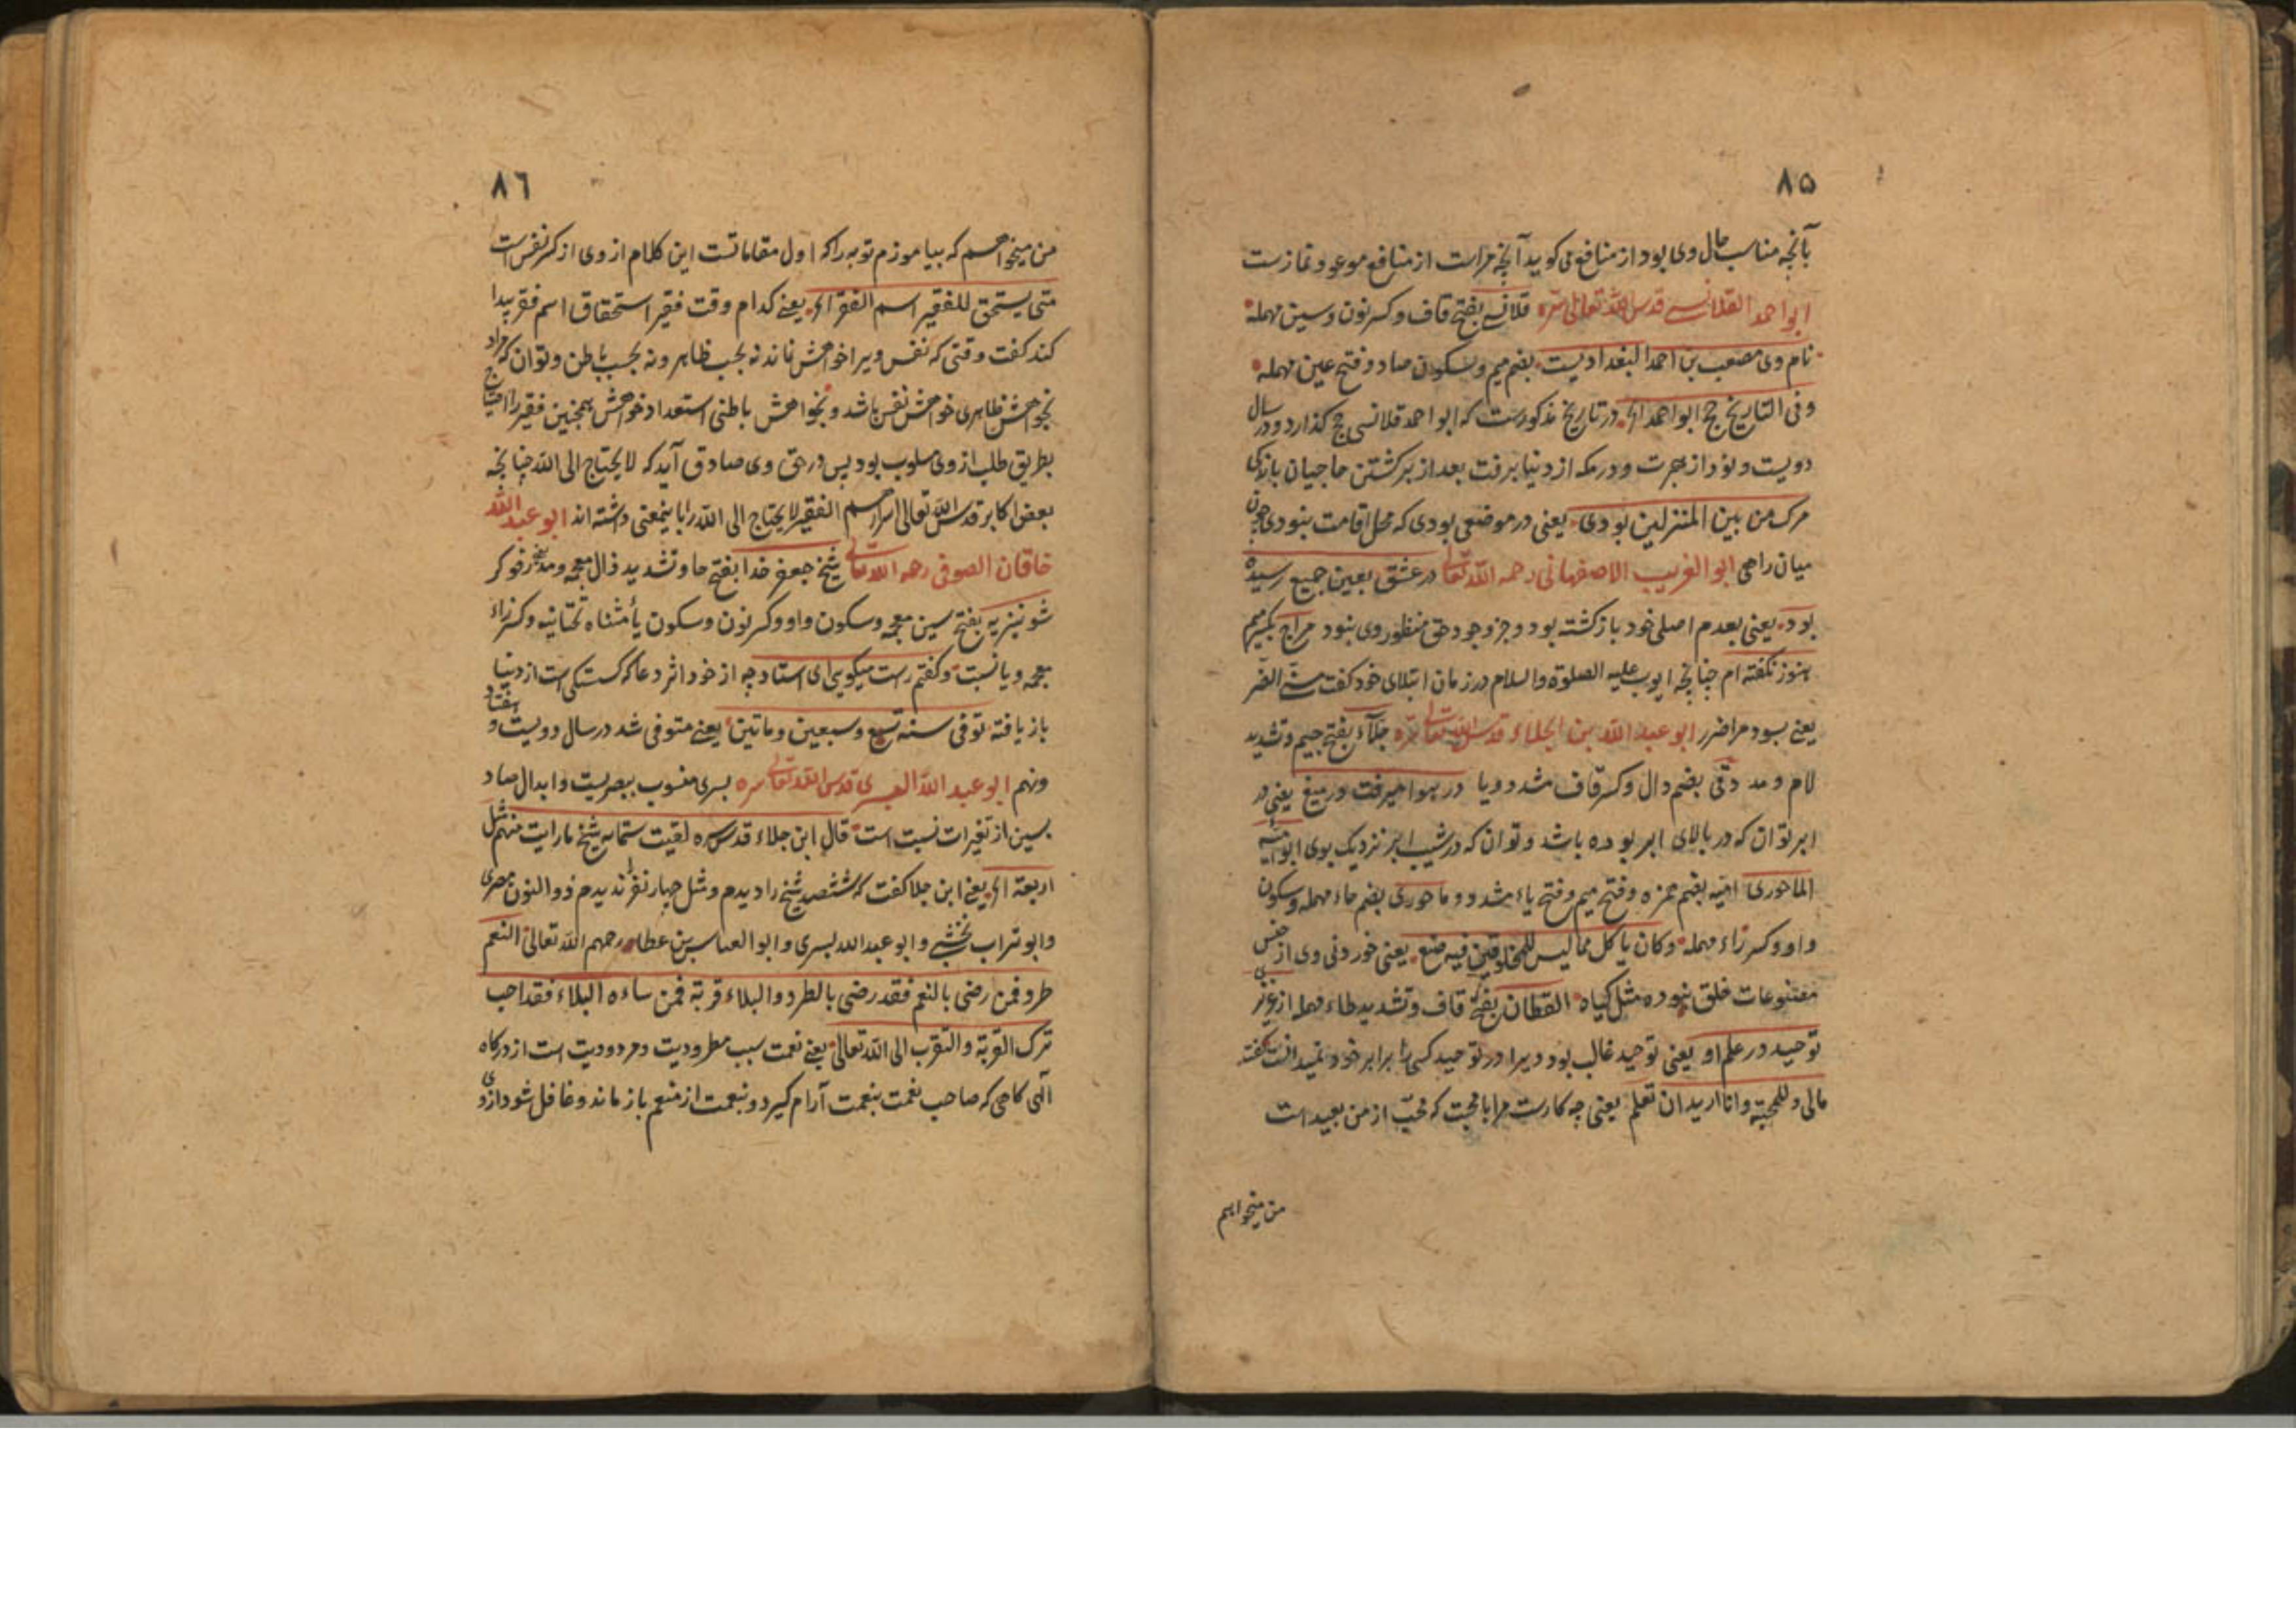 ۸۵
بآنچه مناسب حال وی بود از منافع می کوید آنچه مراست از منافع موعود نماز ست
ابو احمد القلانسی قدس الله تعالی سره قلانسی بفتح قاف و کسر نون و سین مهمله
نام وی مصعب بن احمد البغدادیست بضم میم و سکون صاد و فتح عین مهمله
و فی التاریخ حج ابو احمد الخ در تاریخ مذکورست که ابو احمد قلانسی حج کذارد و در سال
دویست و نود از هجرت و در مکه از دنیا برفت بعد از برکشتن حاجیان باندکی
مرک من بین المنزلین بودی یعنی در موضعی بودی که محل اقامت نبودی چون
میان راهی ابو الغریب الاصفهانی رحمه الله تعالی در عشق بعین جمیع رسیده
بود یعنی بعدم اصلی خود بازکشته بود و جز وجود حق منظور وی نبود مراج بکیریم
هنوز نکفته ام چنانچه ایوب علیه الصلوة والسلام در زمان ابتلای خود کفت مسنی الضر
یعنی بسود مرا ضرر ابو عبد الله بن الجلاء قدس الله تعالی سره جلآء بفتح جیم و تشدید
لام و مد دقی بضم دال و کسر قاف مشدد و یا در هوا میرفت در میغ یعنی در
ابر توان که در بالای ابر بوده باشد و توان که در شیب ابر نزدیک بوی ابو امیه
الماحوری امیه بضم همزه و فتح میم و فتح یاء مشدد و ماحوری بضم حاء مهمله و سکون
واو و کسر زاء مهمله وکان یاکل مما لیس للمخلوقین فیه صنع یعنی خوردنی وی از جنس
مصنوعات خلق نبوده مثل کیاه القطان بفتح قاف و تشدید طاء مهمله از
توحید در علم او یعنی توحید غالب بود ویرا در توحید کسی را برابر خود نمیدانست کفته
مالی و للمحبة وانا ارید ان تعلم یعنی چه کارست مرا با محبت که محبت از من بعید است
من میخواهم
۸۶
من میخواهم که بیاموزم توبه را که اول مقاماتست این کلام از وی از کسر نفس است
متی یستحق للفقیر اسم الفقر الخ یعنی کدام وقت فقیر استحقاق اسم فقر پیدا
کند کفت وقتی که نفس ویرا خواهش نماند نه بحسب ظاهر و نه بحسب باطن و توان که مراد
بخواهش ظاهری خواهش نفس باشد و بخواهش باطنی استعداد خواهش همچنین فقیر را احتیاج
بطریق طلب از وی مسلوب بود پس در حق وی صادق آید که لا یحتاج الی الله چنانچه
بعض اکابر قدس الله تعالی اسرارهم الفقیر لا یحتاج الی الله را باینمعنی داشته اند ابو عبد الله
خاقان الصوفی رحمه الله تعالی شیخ جعفر حذا بفتح حا و تشدید ذال معجمه و مد
شونیزیه بفتح سین معجمه و سکون واو و کسر نون و سکون یأ مثناه تحتانیه و کسر زاء
معجمه و یا نسبت و کفتم راست میکویی ای استاد چه از خود اثر دعا که کستکی است از دنیا
باز یافته توفی سنه تسع و سبعین و ماتین یعنی متوفی شد در سال دویست و هفتاد
و نهم ابو عبد الله البسری قدس الله تعالی سره بسری منسوب ببصریست و ابدال صاد
بسین از تغیرات نسبت است قال ابن جلاء قدس سره لقیت ستمایه شیخ ما رایت منهم مثل
اربعة الخ یعنی ابن جلا کفت که ششصد شیخ را دیدم و مثل چهار نفر ندیدم ذو النون مصری
وابو تراب نخشبی و ابو عبدالله بسری و ابو العباس بن عطا رحمهم الله تعالی النعم
طرد فمن رضی بالنعم فقد رضی بالطرد والبلاء قربة فمن ساءه البلاء فقد احب
ترک القربة والتقرب الی الله تعالی یعنی نعمت سبب مطرودیت و مردودیت است از درکاه
الهی کاهی که صاحب نعمت بنعمت آرام کیرد و بنعمت از منعم باز ماند و غافل شود از وی